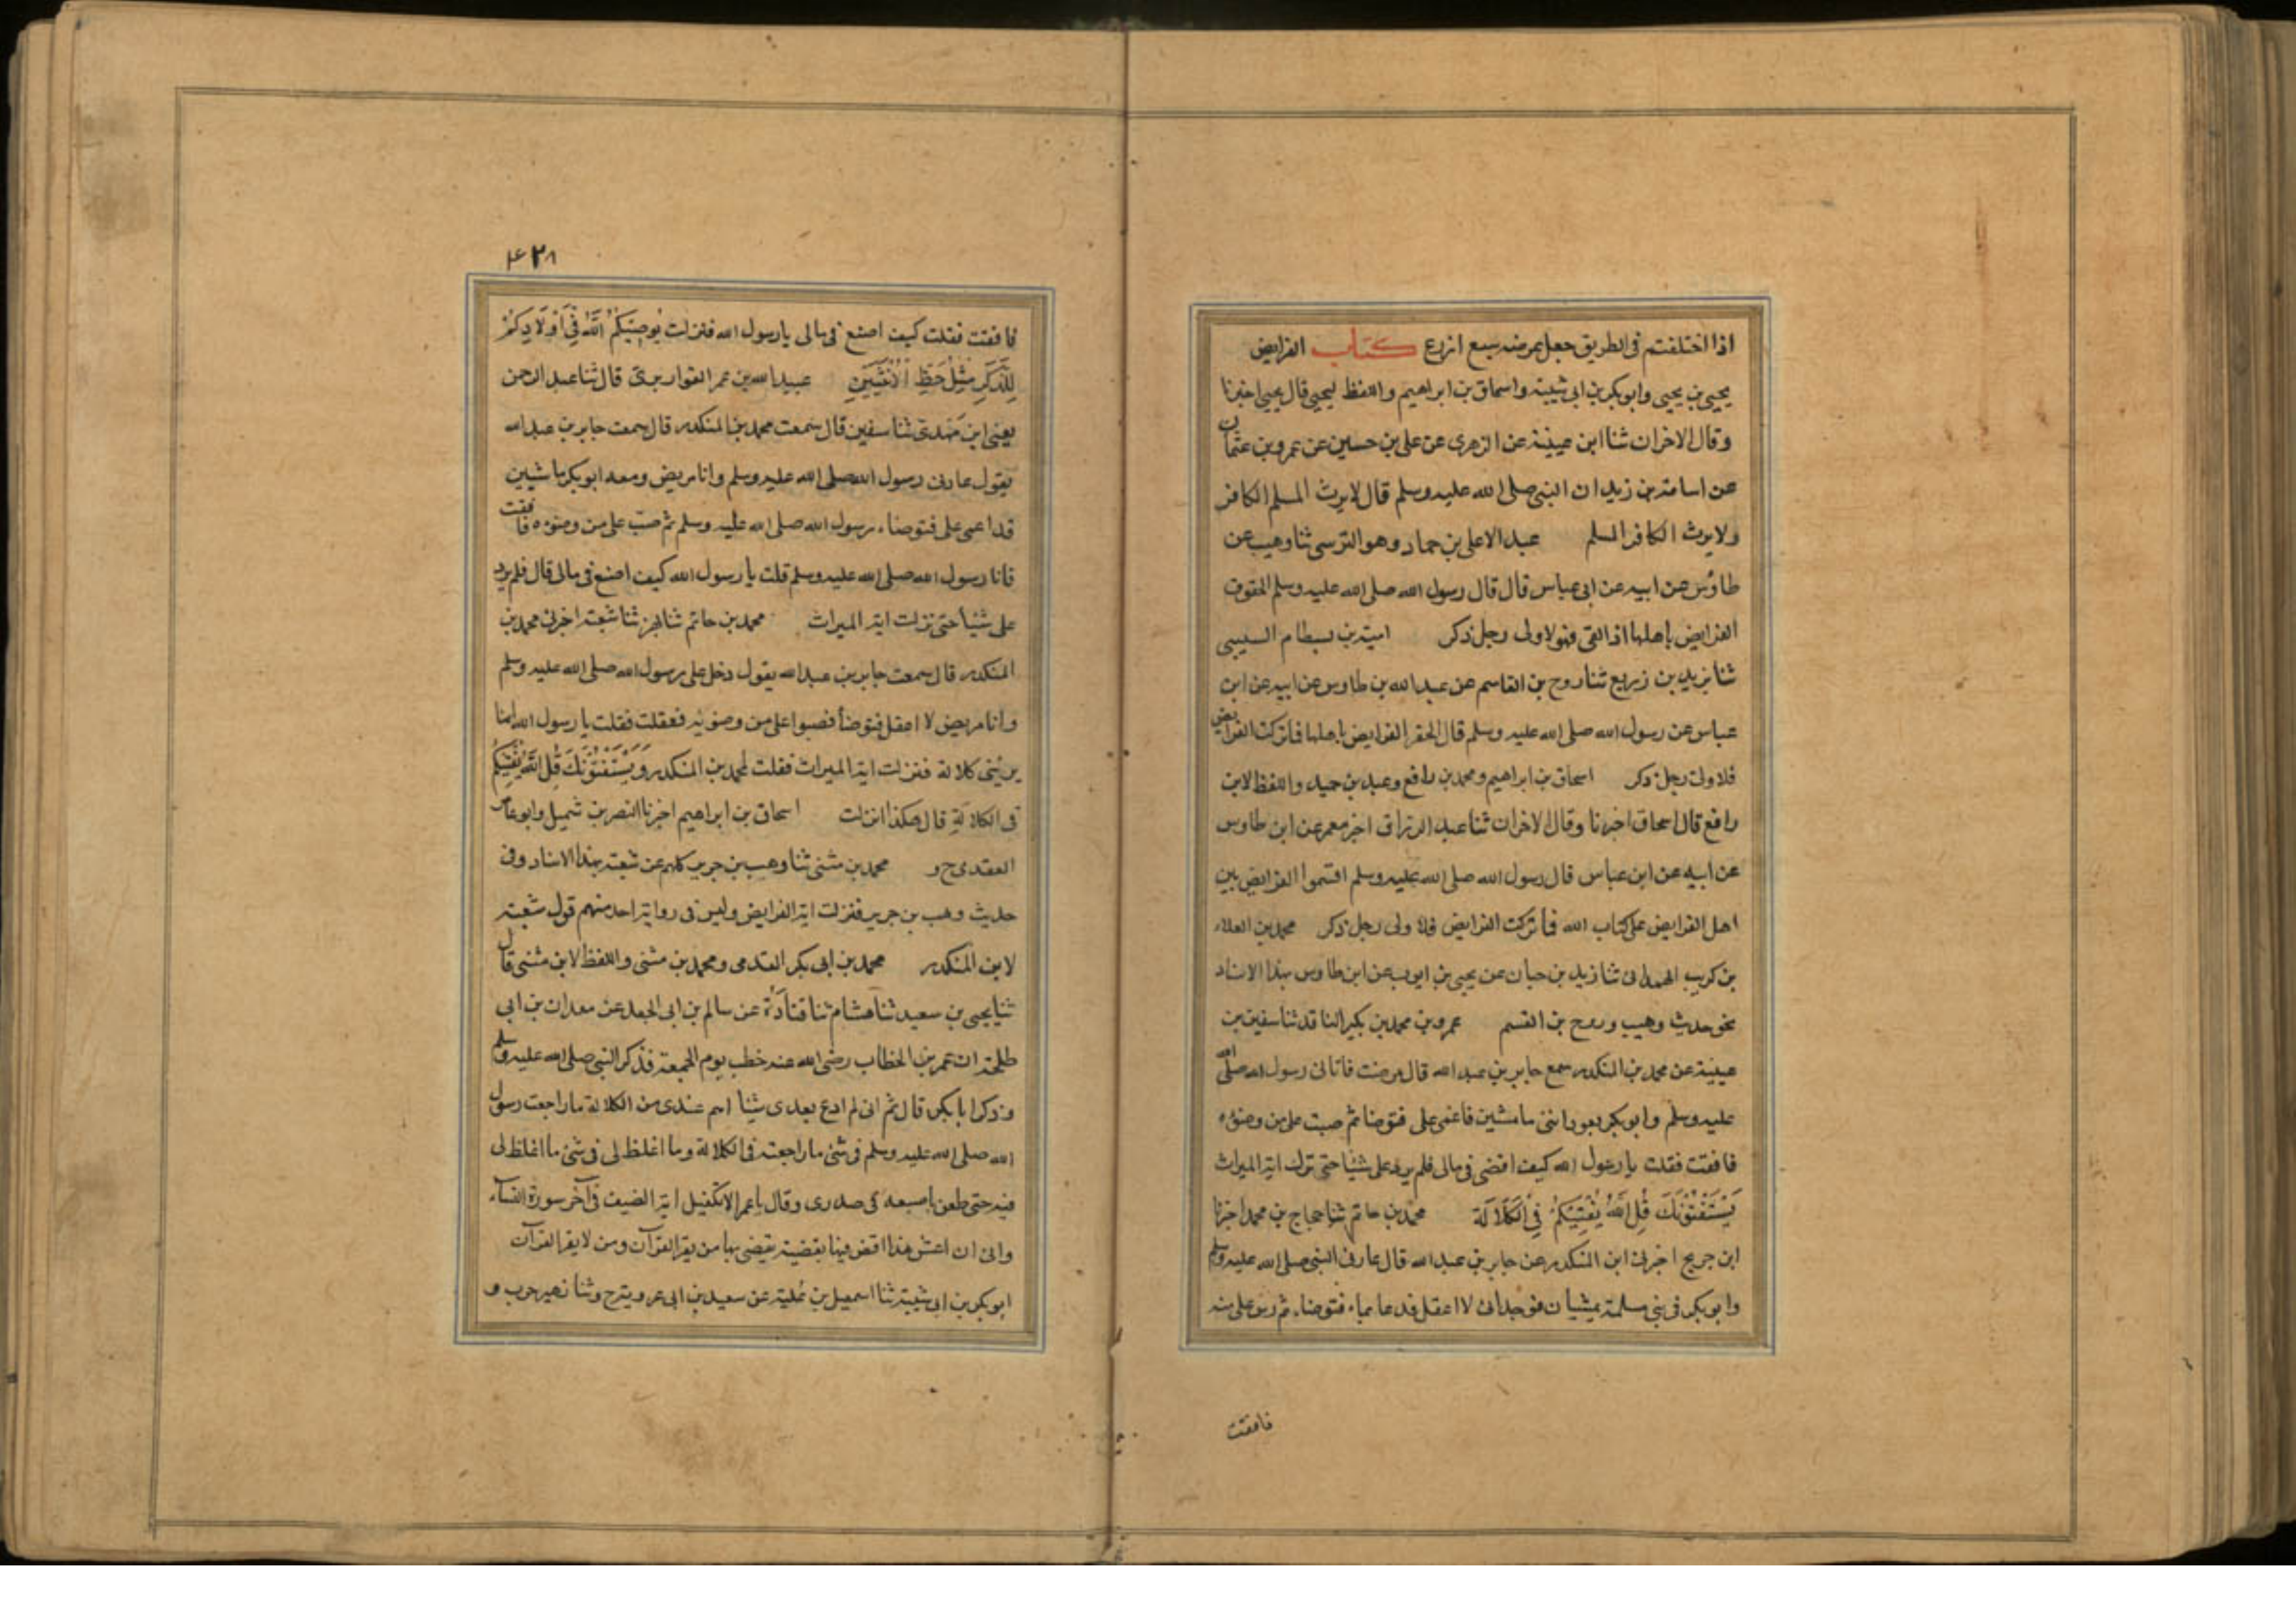 اذا اختلفتم فى الطريق جعل عرضه سبع اذرع كتاب الفرايض
يحيى بن يحيى وابو بكر بن ابى شيبة واسحاق بن ابراهيم واللفظ ليحيى قال يحيى اخبرنا
وقال الاخران ثنا ابن عيينة عن الزهرى عن على بن حسين عن عمرو بن عثمان
عن اسامة بن زيد ان النبى صلى الله عليه وسلم قال لا يرث المسلم الكافر
ولا يرث الكافر المسلم عبد الاعلى بن حماد وهو النرسى ثنا وهيب عن
طاؤس عن ابيه عن ابى عباس قال قال رسول الله صلى الله عليه وسلم الحقوق
الفرايض باهلها اذا القى فهو لاولى رجل ذكر امية بن بسطام السيبى
ثنا يزيد بن زيريع ثنا روح بن القاسم عن عبد الله بن طاوس عن ابيه عن ابن
عباس عن رسول الله صلى الله عليه وسلم قال الحقر الفرايض باهلها فما تركت الفرايض
فلا ولى رجل ذكر اسحاق بن ابراهيم ومحمد بن رافع وعبد بن حميد واللفظ لابن
رافع قال اسحاق اخبرنا وقال الاخران ثنا عبد الرزاق اخبر معمر عن ابن طاوس
عن ابيه عن ابن عباس قال رسول الله صلى الله عليه وسلم اقتموا الفرايض بين
اهل الفرايض على كتاب الله فما تركت الفرايض فلا ولى رجل ذكر محمد بن العلاء
بن كريب الهمدانى ثنا زيد بن حبان عن يحيى بن ايوب عن ابن طاوس بهذا الاسناد
نحو حديث وهيب وروح بن القسم عمرو بن محمد بن بكير الناقد ثنا سفين بن
عيينة عن محمد بن المنكدر سمع جابر بن عبد الله قال مرضت فاتانى رسول الله صلى الله
عليه وسلم وابو بكر يعودانى ماشيين فاغمى على فتوضا ثم صبت على من وضوءه
فافقت فقلت يا رسول الله كيف اقضى فى مالى فلم يرد على شيئا حتى نزلت اية الميراث
يَسْتَفْتُونَكَ قُلِ اللَّهُ يُفْتِيكُمْ فِي الْكَلَالَة محمد بن حاتم ثنا حجاج بن محمد اخبرنا
ابن جريج اخبرنى ابن المنكدر عن جابر بن عبد الله قال عادنى النبى صلى الله عليه وسلم
وابو بكر فى بنى سلمة يمشيان فوجدانى لا اعقل فدعا بماء فتوضاء ثم رش على منه
فافقت
٤٢٨
فافقت فقلت كيف اصنع فى مالى يا رسول الله فنزلت يُوصِيكُمُ اللَّهُ فِي أَوْلَادِكُمْ
لِلذَّكَرِ مِثْلُ حَظِّ الْأُنْثَيَيْنِ عبيد الله بن عمر القواريرى قال ثنا عبد الرحمن
يعنى ابن مهدى ثنا سفين قال سمعت محمد بن المنكدر قال سمعت جابر بن عبد الله
يقول عادنى رسول الله صلى الله عليه وسلم وانا مريض ومعه ابو بكر ماشيين
قد اغمى على فتوضاء رسول الله صلى الله عليه وسلم ثم صب على من وضوءه فافقت
فانا رسول الله صلى الله عليه وسلم قلت يا رسول الله كيف اصنع فى مالى قال فلم يرد
على شيئا حتى نزلت اية الميراث محمد بن حاتم ثنا بهز ثنا شعبة اخبرنى محمد بن
المنكدر قال سمعت جابر بن عبد الله يقول دخل على رسول الله صلى الله عليه وسلم
وانا مريض لا اعقل فتوضأ فصبوا على من وضوئه فعقلت فقلت يا رسول الله انما
يرثنى كلالة فنزلت اية الميراث فقلت لمحمد بن المنكدر وَيَسْتَفْتُونَكَ قُلِ اللَّهُ يُفْتِيكُمْ
فى الكلالة قال هكذا انزلت اسحاق بن ابراهيم اخبرنا النضر بن شميل وابو عامر
العقدى ح و محمد بن مثنى ثنا وهب بن جرير كلهم عن شعبة بهذا الاسناد وفى
حديث وهب بن جرير فنزلت اية الفرايض وليس فى رواية احد منهم قول شعبة
لابن المنكدر محمد بن ابى بكر المقدمى ومحمد بن مثنى واللفظ لابن مثنى قال
ثنا يحيى بن سعيد ثنا هشام ثنا قتادة عن سالم بن ابى الجعد عن معدان بن ابى
طلحة ان عمر بن الخطاب رضى الله عنه خطب يوم الجمعة فذكر النبى صلى الله عليه وسلم
وذكر ابا بكر قال ثم انى لم ادع بعدى شيئا اهم عندى من الكلالة ما راجعت رسول
الله صلى الله عليه وسلم فى شئ ما راجعته فى الكلالة وما اغلظ لى فى شئ ما اغلظ لى
فيه حتى طعن باصبعه فى صدرى وقال يا عمر الا تكفيك اية الصيف فى آخر سورة النساء
وانى ان اعش هذا اقض فيها بقضية يقضى بها من يقرا القرآن ومن لا يقرا القرآن
ابو بكر بن ابى شيبة ثنا اسمعيل بن علية عن سعيد بن ابى عروبة ح وثنا زهير حرب و